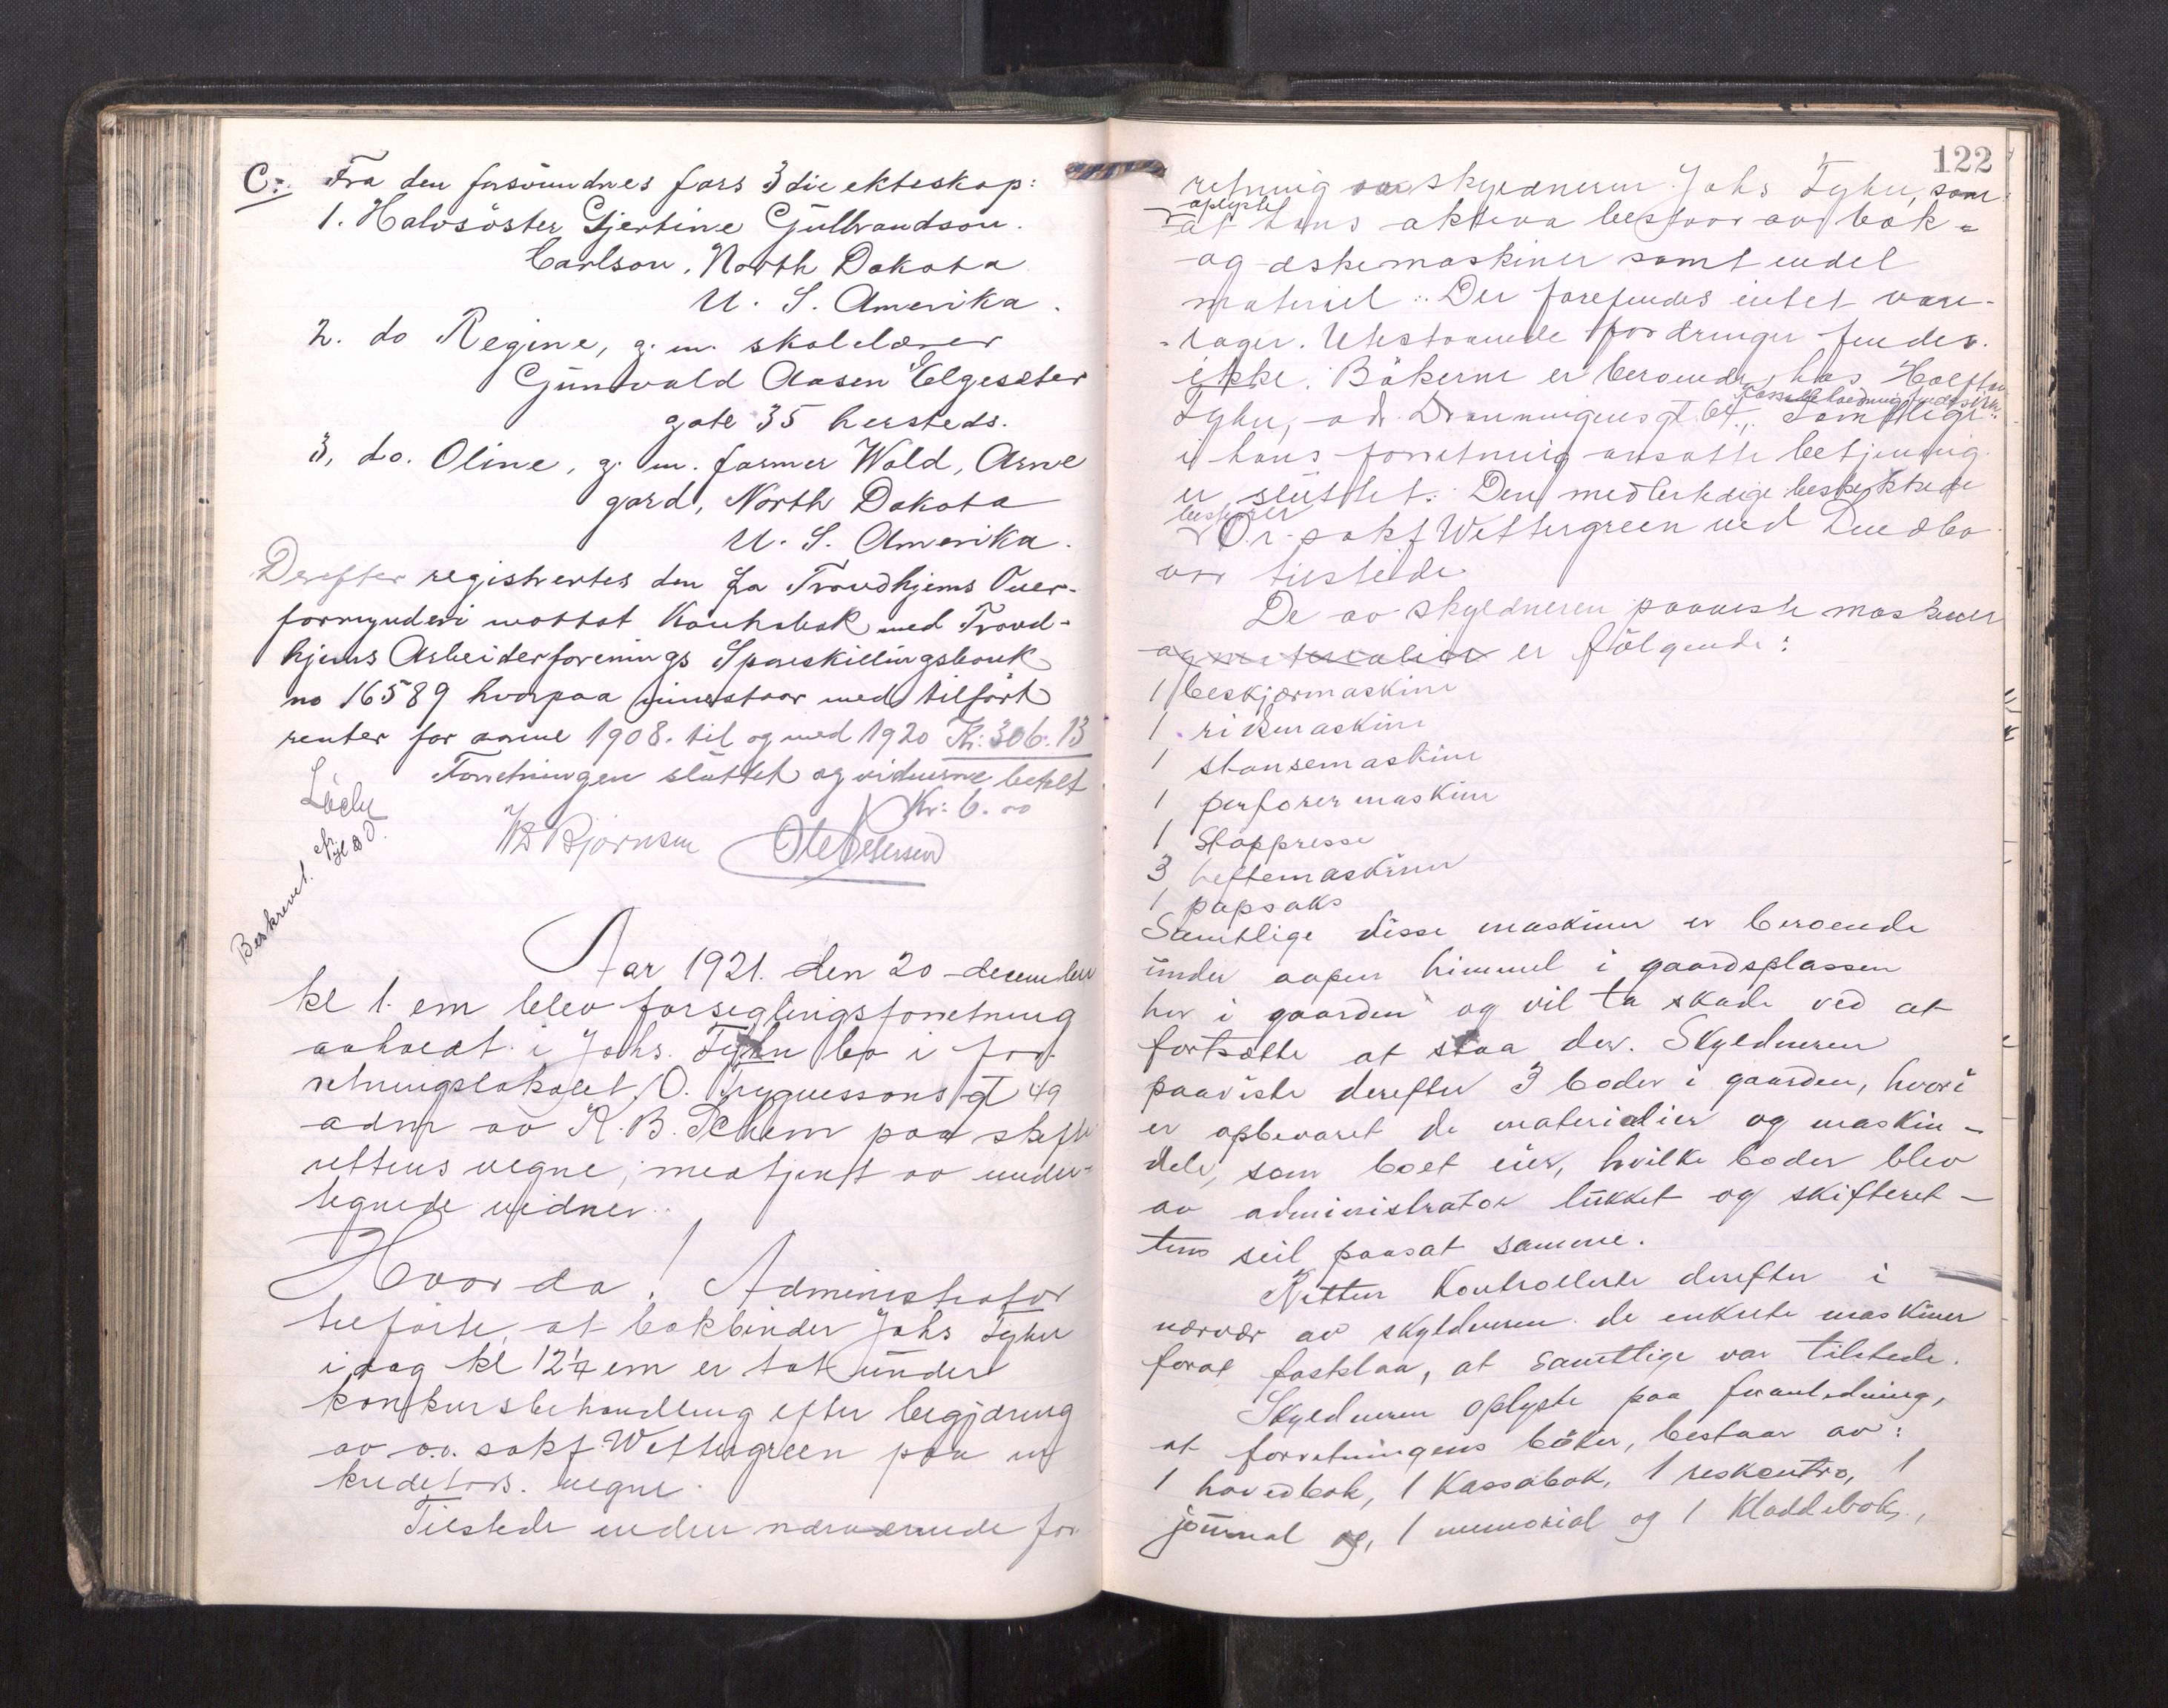 C. Fra den forsvundnes fars 3die ekteskap:
1. Halvsöster Gjertine Gulbrandson.
Carlson, North Dakota
U. S. Amerika.
2. do Regine, g. m. skolelærer
Gunvald Aasen Elgeseter
gate 35 hersteds.
3. do. Oline, g. m. farmer Wold, Arne
gard, North Dakota
U. S. Amerika.
Derefter registrertes den fra Trondhjems Over-
formynderi mottat Kontrabok med Trond-
hjems Arbeiderforenings Spareskillingsbank
no 16589 hvorpaa innestaar med tilført
renter for aarene 1908. til og med 1920 Kr: 306.13
Forretningen sluttet og vidnerne betalt
Kr: 6.00
Bjørnsen Ole Petersen
Beskrevet.
Aar 1921. den 20 december
kl 1. em blev forseglingsforretning
avholdt i Johs. Tyhn bo i for-
retningslokalet, O. Trygvessons gt 49
adm av K. B. paa skifte
rettens vegne, medtjent av under-
tegnede vidner.
Hvorda! Administrator
tilførte, at bokbinder Johs Tyhn
idag kl 12¼ em er tat under
konkursbehandling efter begjæring
av o.r. sakf Wettergreen paa en
kreditors vegne.
Tilstede under nærværende for
122
retning var skyldneren Johs Tyhn, som
oplyste
at hans aktiva bestaar av bok-
og æskemaskiner samt endel
materiel. Der forefindes intet vare-
lager. Utestaaende fordringer findes
ikke. Bökerne er beroende hos
Tyhn, adr. Dronningens gt. 64. Samtlige
i hans forretning ansatte betjening
er sluttet. Den midlertidige beskikkede
bestyrer
O.r. sakf Wettergreen ved Lundbo
var tilstede
De av skyldneren paaviste maskiner
og materialier er fölgende:
1 beskjærmaskine
1 rismaskine
1 stansemaskine
1 perforermaskine
1 Stoppresse
3 heftemaskiner
1 papsaks
Samtlige disse maskiner er beroende
under aapen himmel i gaardsplassen
her i gaarden og vil ta skade ved at
fortsætte at staa der. Skyldneren
paaviste derefter 3 boder i gaarden, hvori
er opbevaret de materialier og maskin-
dele, som boet eier, hvilke boder blev
av administrator lukket og skifteret-
tens seil paasat samme.
Retten kontrollerte derefter i
nærvær av skyldneren de enkelte maskiner
forat fastslaa, at samtlige var tilstede.
Skyldneren oplyste paa foranledning,
at forretningens böker, bestaar av:
1 hovedbok, 1 Kassabok, 1 reskontro, 1
journal og, 1 memorial og 1 Kladdebok,